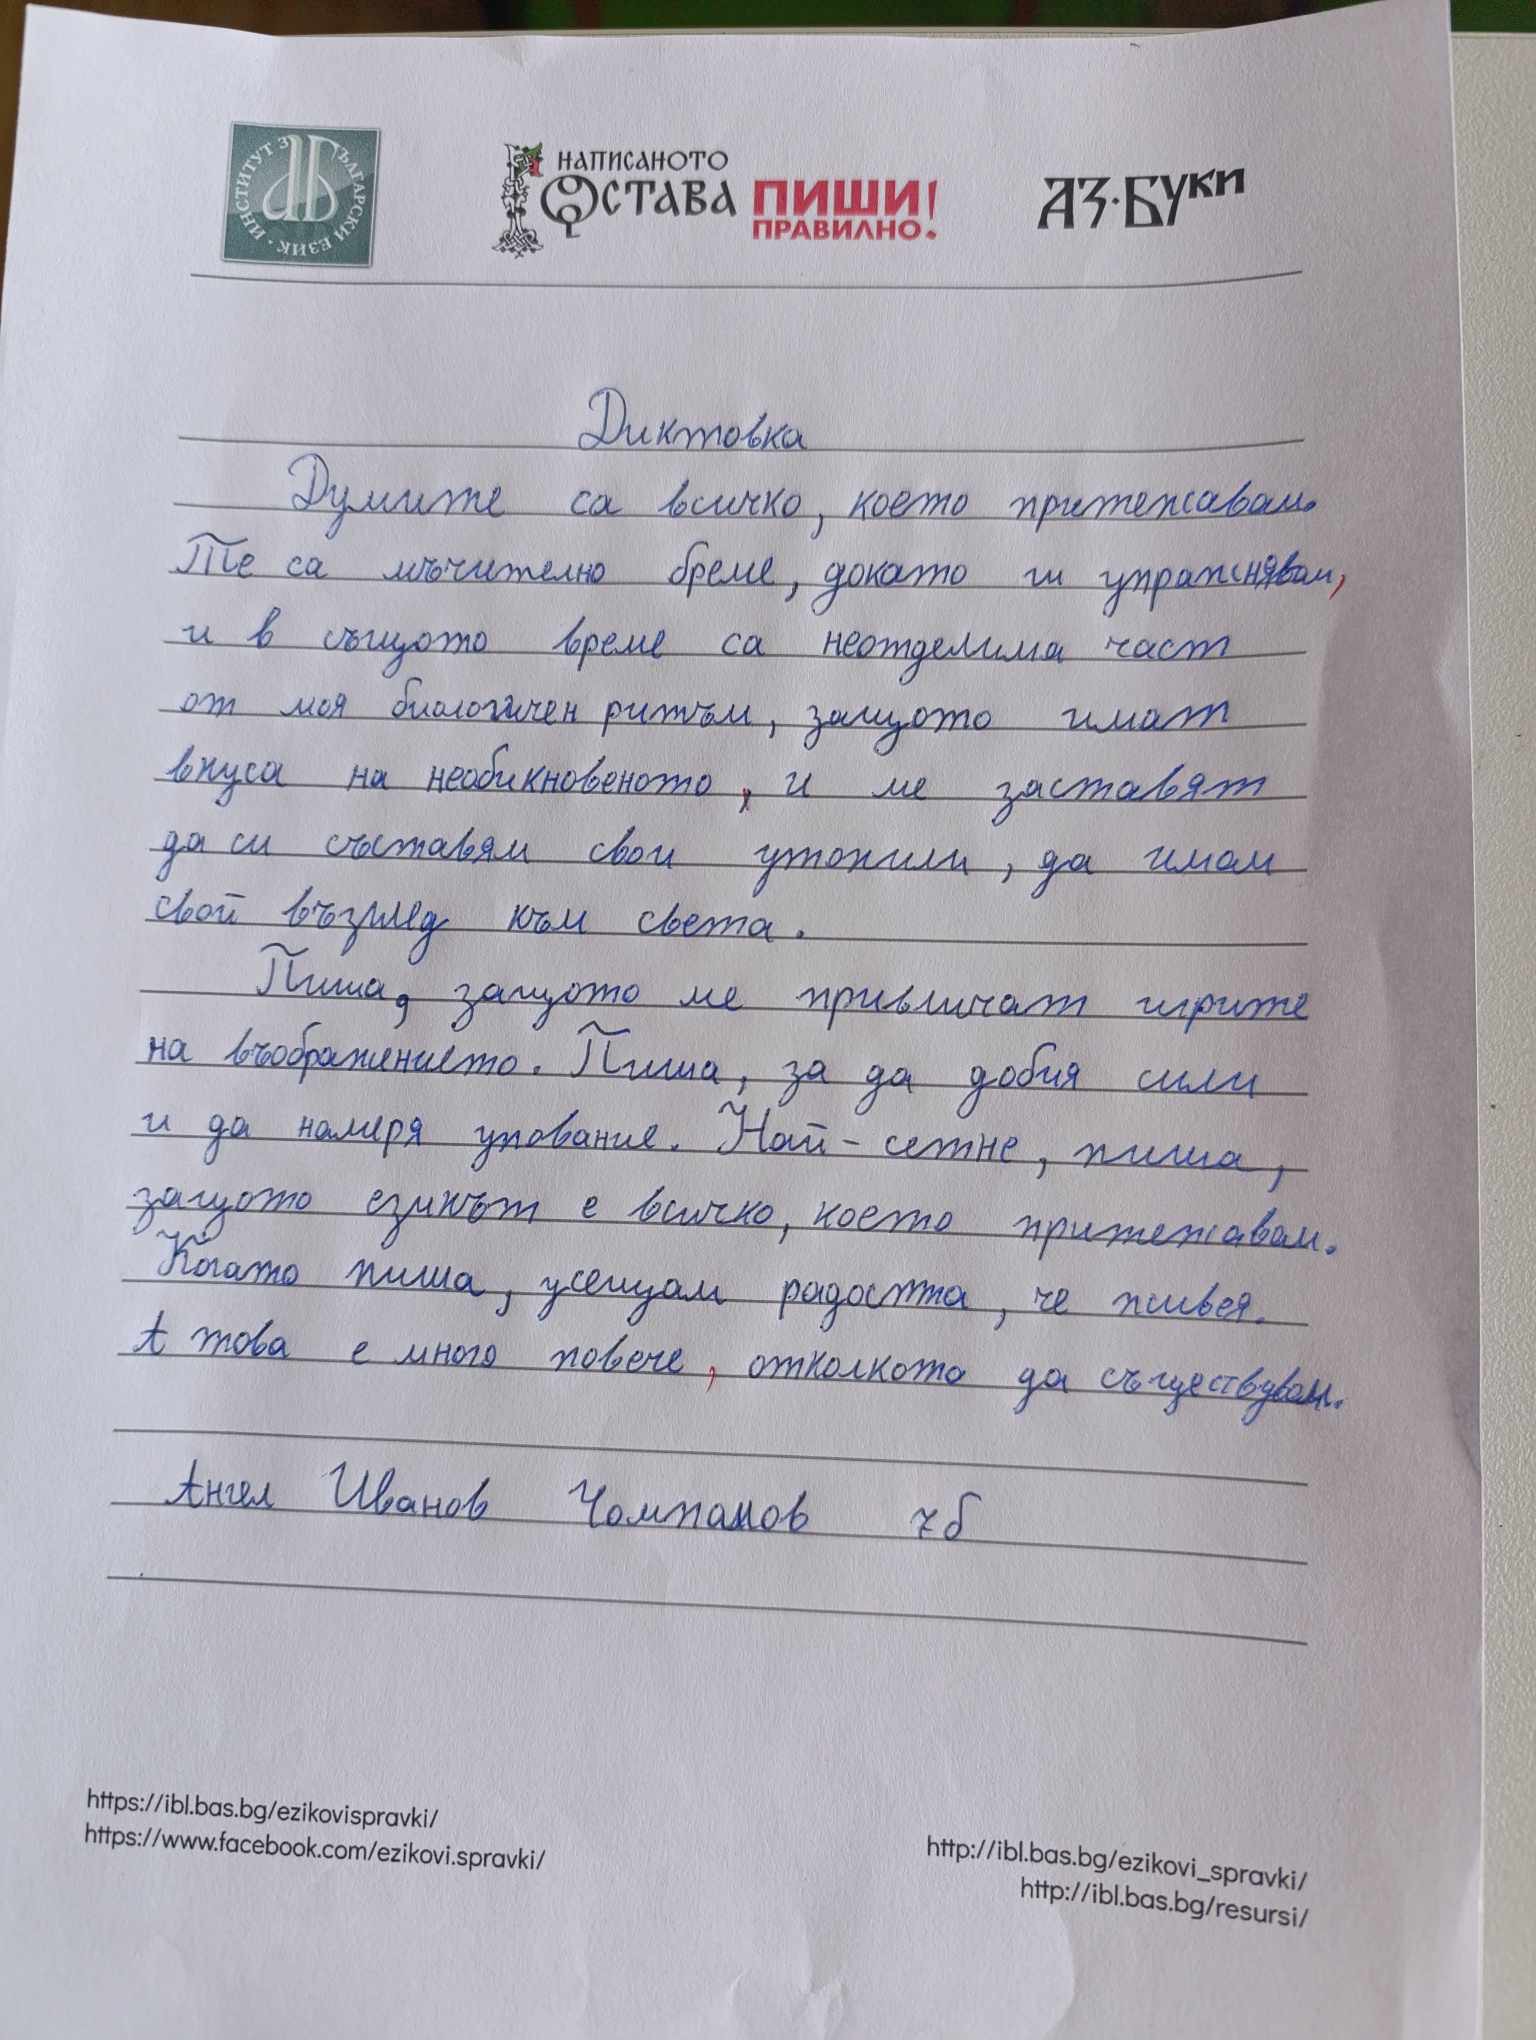 ИНСТИТУТ ЗА БЪЛГАРСКИ ЕЗИК
НАПИСАНОТО
ОСТАВА
ПИШИ
ПРАВИЛНО!
АЗ·БУКИ
Диктовка
Думите са всичко, което притежавам.
Те са мъчително бреме, докато ги упражнявам,
и в същото време са неотделима част
от моя биологичен ритъм, защото имат
вкуса на необикновеното, и ме заставят
да си съставям свои утопии, да имам
свой възглед към света.
Пиша, защото ме привличат игрите
на въображението. Пиша, за да добия сили
и да намеря упование. Най-сетне, пиша,
защото езикът е всичко, което притежавам.
Когато пиша, усещам радостта, че живея.
А това е много повече, отколкото да съществувам.
Ангел Иванов Чомпалов 7б
https://ibl.bas.bg/ezikovispravki/
https://www.facebook.com/ezikovi.spravki/
http://ibl.bas.bg/ezikovi_spravki/
http://ibl.bas.bg/resursi/